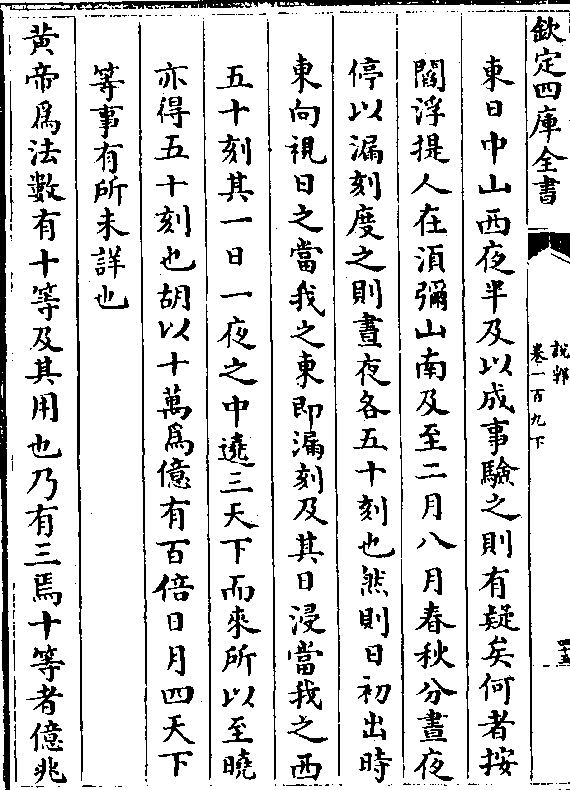 欽定四庫全書
說郛
卷一百九下
四十五
東日中山西夜半及以成事驗之則有疑矣何者按
閻浮提人在湏彌山南及至二月八月春秋分晝夜
停以漏刻度之則晝夜各五十刻也然則日初出時
東向視日之當我之東即漏刻及其日浸當我之西
五十刻其一日一夜之中遶三天下而來所以至曉
亦得五十刻也胡以十萬爲億有百倍日月四天下
等事有所未詳也
黄帝爲法數有十等及其用也乃有三焉十等者億兆